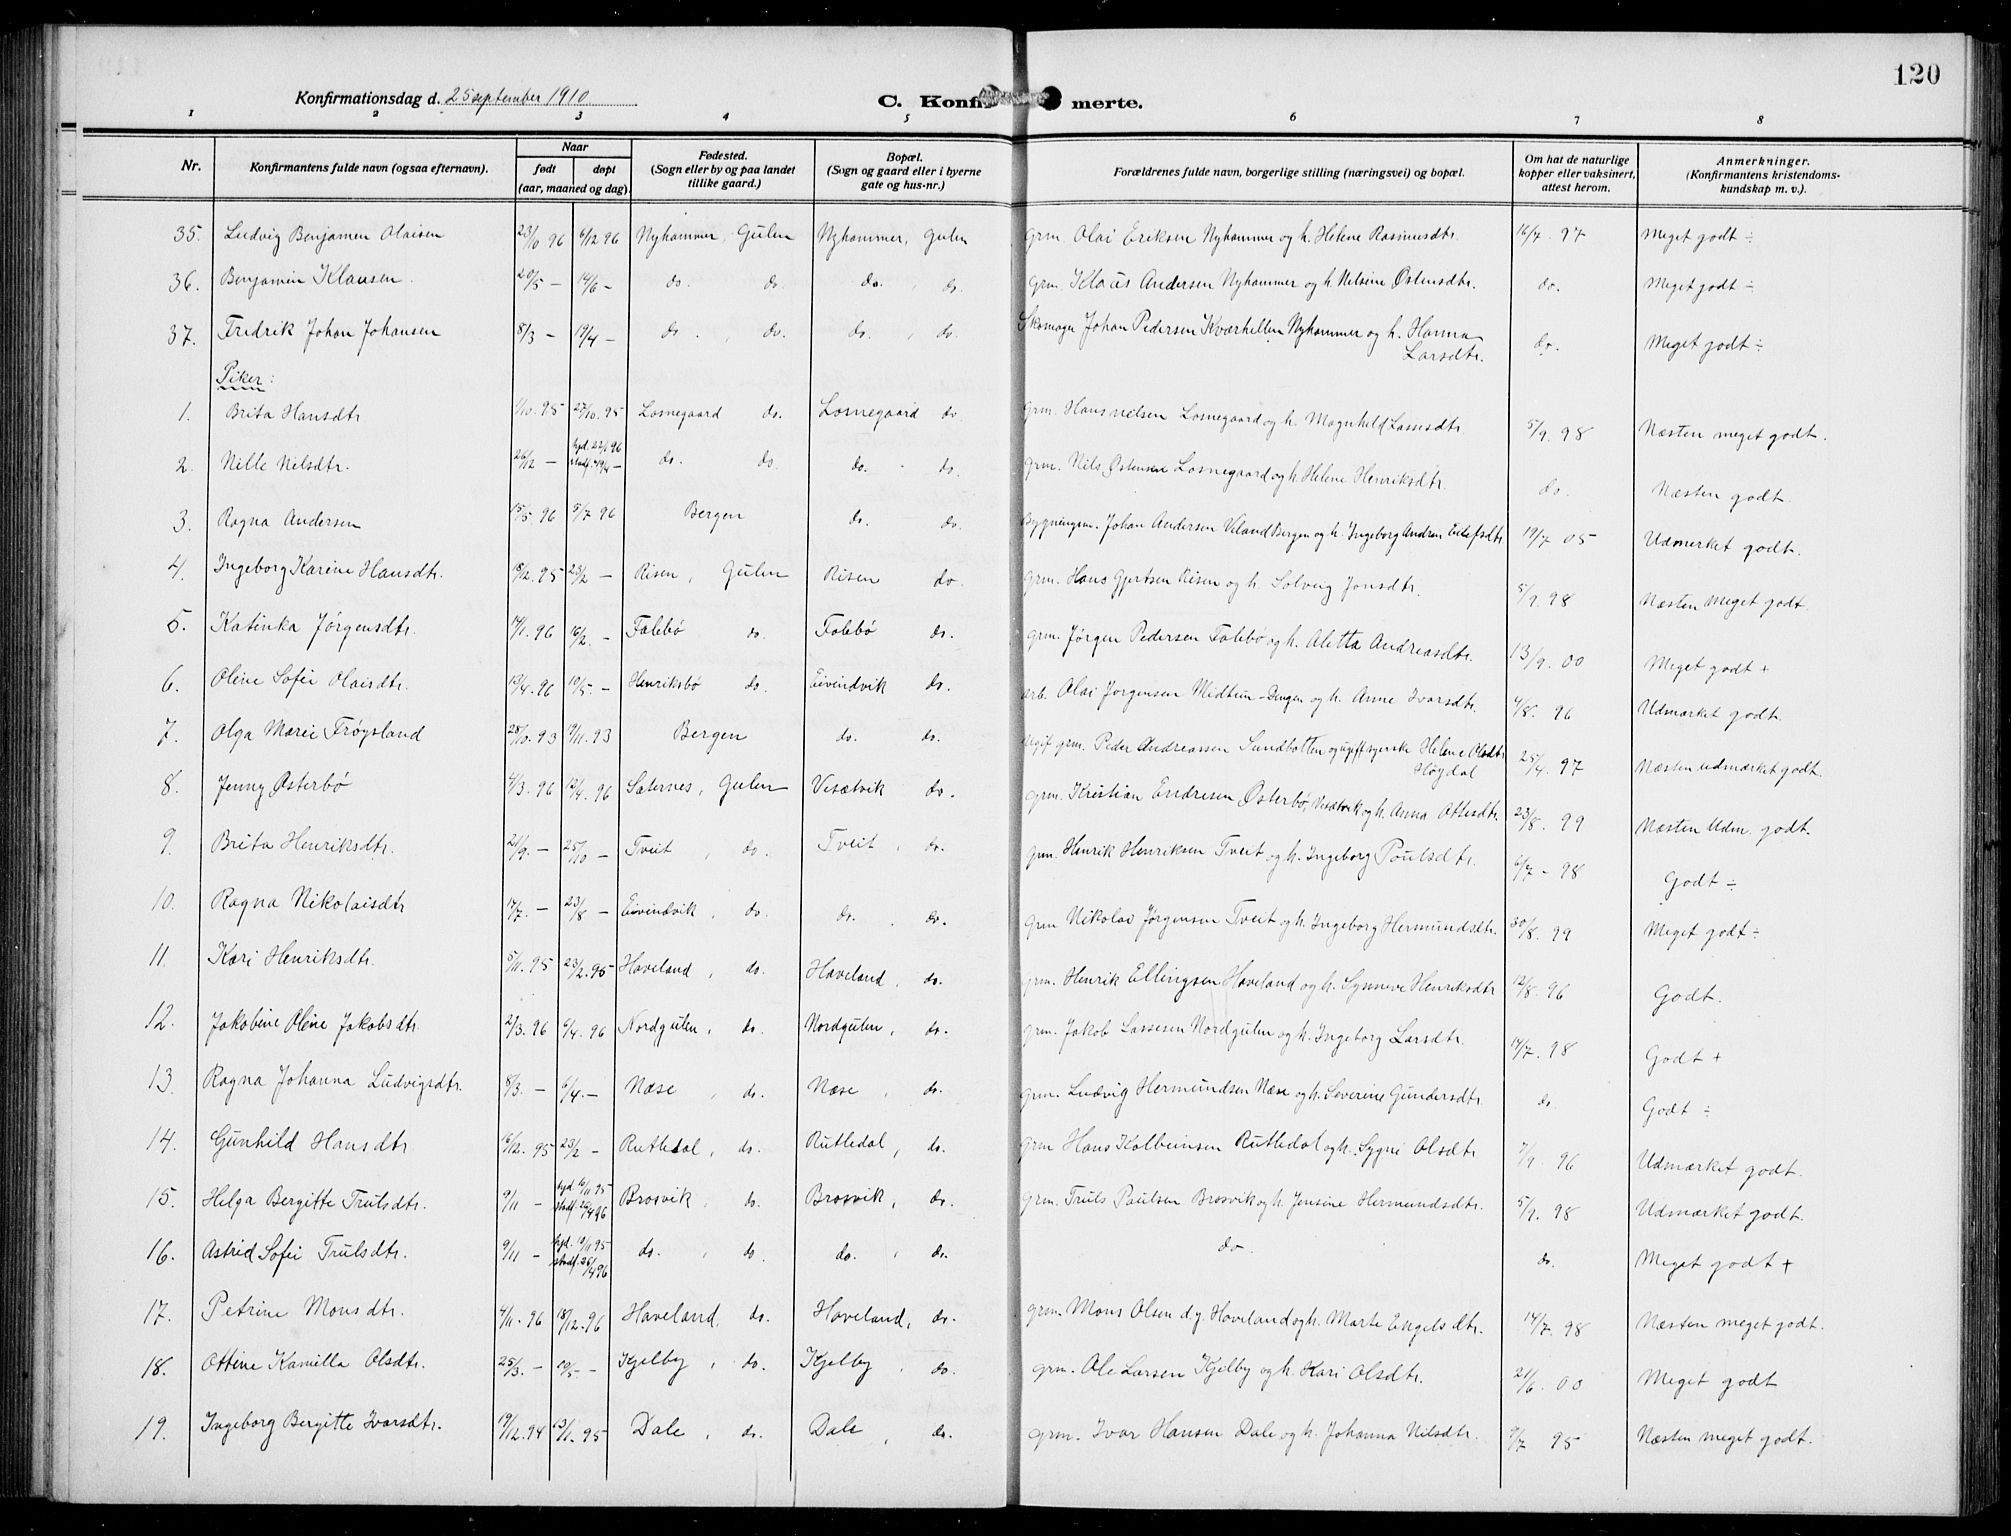 120
Konfirmationsdag d. 25 september 1910
C. Konfi merte.
1 2 3 4 5 6 7 8
Nr. Konfirmantens fulde navn (ogsaa efternavn). Naar født døpt (aar, maaned og dag). Fødested. (Sogn eller by og paa landet tillike gaard.) Bopæl. (Sogn og gaard eller i byerne gate og hus-nr.) Forældrenes fulde navn, borgerlige stilling (næringsvei) og bopæl. Om hat de naturlige kopper eller vaksinert, attest herom. Anmerkninger. (Konfirmantens kristendoms-kundskap m. v.).
35. Ludvig Benjamen Olaisen 23/10 96 6/12 96 Nyhammer, Gulen Nyhammer, Gulen grm. Olai Eriksen Nyhammer og h. Helene Rasmusdtr. 16/7. 97 Meget godt ÷
36. Benjamin Klausen. 20/5 — 14/6 — do. do. do. do. grm. Klaus Andersen Nyhammer og h. Nelsine Østensdtr. do. Meget godt ÷
37. Fredrik Johan Johansen 8/3 — 19/4 — do. do. do. do. Skomager Johan Pedersen Kværhellen Nyhammer og h. Hanna Larsdtr. do. Meget godt ÷
Piker:
1. Brita Hansdtr. 1/10. 95 27/10. 95 Losnegaard do. Losnegaard do grm. Hans Nelsen Losnegaard og h. Magnhild Lassesdtr. 5/9. 98 Næsten meget godt.
2. Nille Nilsdtr. 26/12 — hjd. 22/1 96 stadf. 19/4 — do. do. do. do. grm. Nils Østensen Losnegaard og h. Helene Henriksdtr. do. Næsten godt.
3. Ragna Andersen 15/5. 96 5/7 96 Bergen do. do. Bygningsm. Johan Andersen Bergen og h. Ingeborg 19/7 05 Udmerket godt.
4. Ingeborg Karine Hansdtr. 18/2. 95 23/2 — Risen, Gulen Risen do. grm. Hans Gjertsen Risen og h. Solveig Jonsdtr. 5/9. 98 Næsten Meget godt.
5. Katinka Jørgensdtr. 14/1. 96 16/2. — Falebø do. Falebø do. grm. Jørgen Pedersen Falebø og h. Aletta Andreasdtr. 13/9. 00 Meget godt +
6. Oline Sofie Olaisdtr. 13/4. 96 10/5. — Henriksbø do. Eivindvik do. arb. Olai Jørgensen Midtun - og h. Anne Ivarsdtr. 4/8. 96 Udmærket godt.
7. Olga Marie Frøysland 28/10. 93 19/11. 93 Bergen do. do. ugif. grm. Peder Andreassen Sundbotten og ugift syerske Helene Olsdtr Høydal 25/4. 97 Næsten udmærket godt.
8. Jenny Østerbø 4/3. 96 12/4. 96 Sæternes, Gulen Visætvik do. grm. Kristian Endresen Østerbø, Visætvik og h. Anna Ottesdtr. 23/8. 99 Næsten Udm. godt.
9. Brita Henriksdtr. 21/9. — 25/10 — Tveit, do. Tveit, do. grm. Henrik Henriksen Tveit og h. Ingeborg Poulsdtr. 6/7 - 98 Godt ÷
10. Ragna Nikolaisdtr 14/7. — 23/8 — Eivindvik, do. do. do. grm Nikolai Jørgensen Tveit og h. Ingeborg Hermundsdtr. 30/8. 99 Meget godt ÷
11. Kari Henriksdtr. 5/11. 95 23/2. 95 Haveland, do. Haveland, do. grm. Henrik Ellingsen Haveland og h. Synneve Henriksdtr 12/8. 96 Godt.
12. Jakobine Oline Jakobsdtr. 2/3. 96 6/4. 96 Nordgulen, do. Nordgulen, do. grm. Jakob Lassesen Nordgulen og h. Ingeborg Larsdtr. 14/7. 98 Godt +
13. Ragna Johanna Ludvigsdtr. 8/3. — 6/4. — Næse, do. Næse, do. grm. Ludvig Hermundsen Næse og h. Severine Gundersdtr. do. Godt ÷
14. Gunhild Hansdtr 16/12. 95 23/2 — Rutledal, do. Rutledal, do. grm Hans Kolbeinsen Rutledal og h. Sygni Olsdtr 7/9. 96 Udmærket godt.
15. Helga Bergitte Trulsdtr. 9/11 — hjd. 10/11 95 stadf. 26/4 96 Brosvik, do. Brosvik, do. grm. Truls Paulsen Brosvik og h. Jensine Hermundsdtr. 5/9. 98 Udmærket godt.
16. Astrid Sofie Trulsdtr. 9/11 — hjd. 10/11 95 stadf. 26/4 96 do. do. do. do. do. do. Meget godt +
17. Petrine Monsdtr. 4/11. 96 18/12. 96 Haveland, do. Haveland, do. grm. Mons Olsen d.y. Haveland og h. Marte Engelsdtr. 14/7. 98 Næsten meget godt.
18. Ottine Kamilla Olsdtr. 25/3. — 10/5 — Kjelby, do. Kjelby, do. grm. Ole Larsen Kjelby og h. Kari Olsdtr. 21/6. 00 Meget godt
19. Ingeborg Bergitte Ivarsdtr. 19/12. 94 13/1. 95 Dale, do. Dale, do. grm. Ivar Hansen Dale og h. Johanna Nilsdtr. 9/7 95 Næsten meget godt.